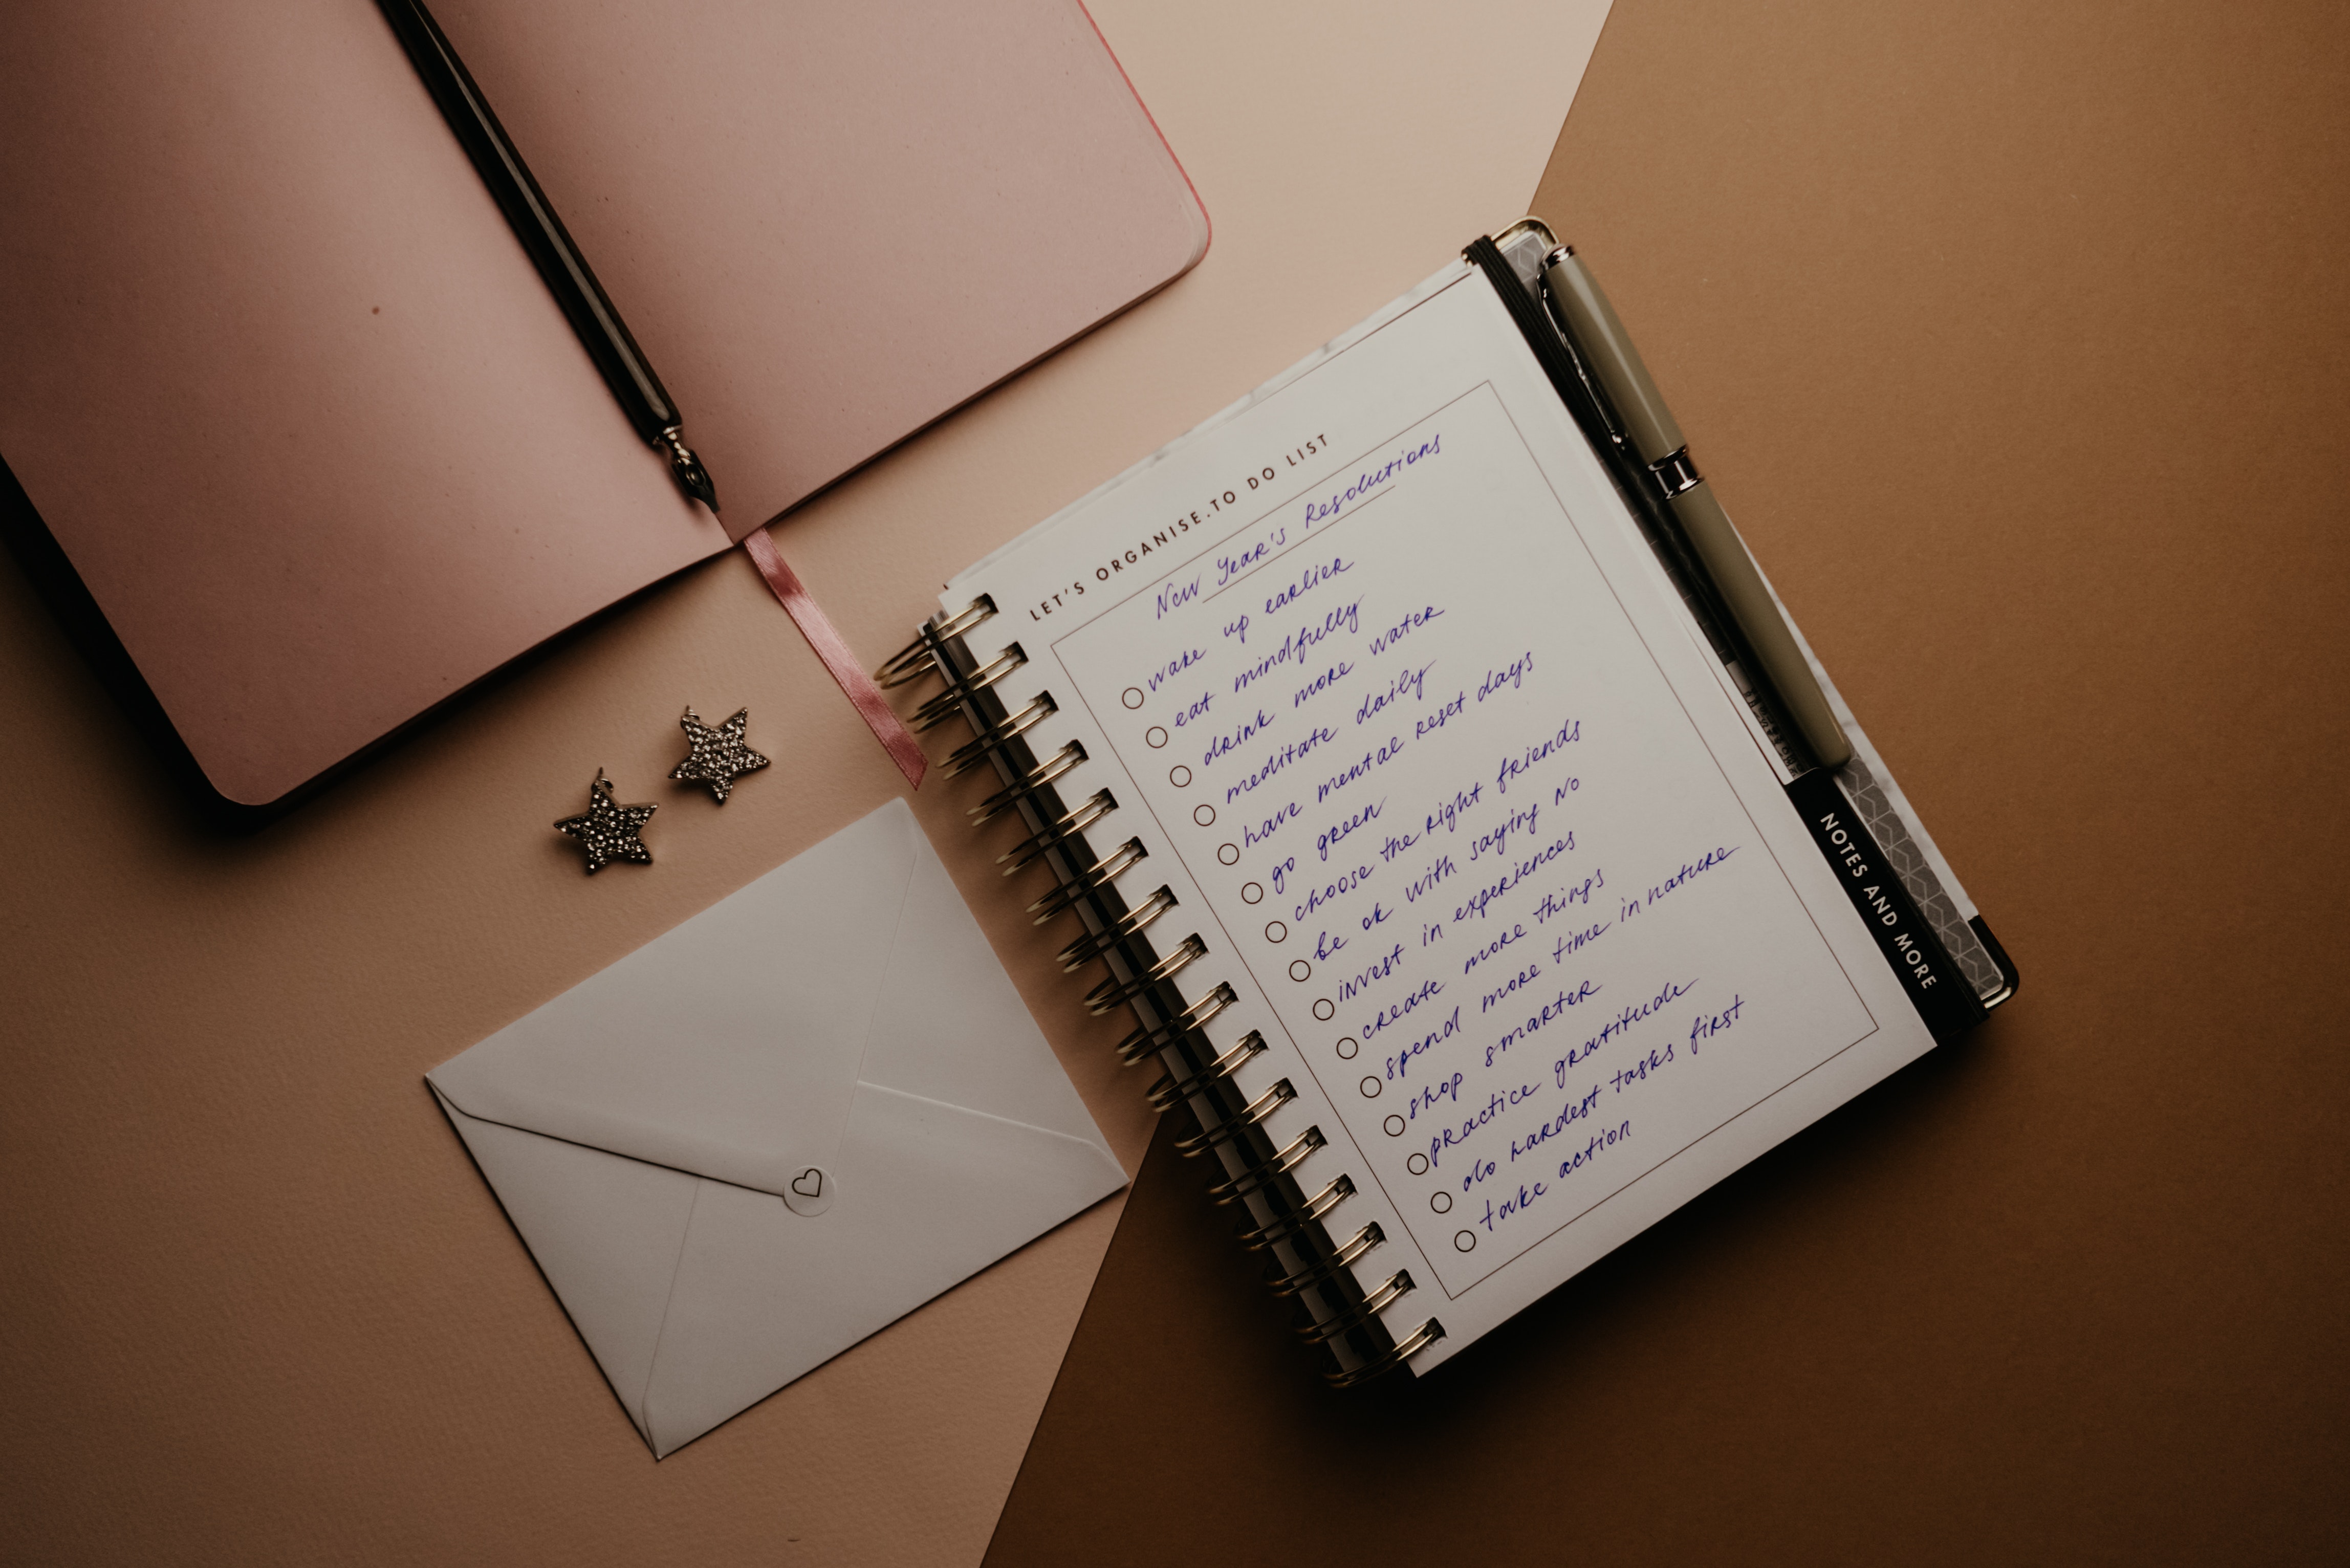 LET'S ORGANISE. TO DO LIST
New Year's Resolutions
wake up earlier
eat mindfully
drink more water
meditate daily
have mental reset days
go green
choose the right friends
be ok with saying no
invest in experiences
create more things
spend more time in nature
shop smarter
practice gratitude
do hardest tasks first
take action
NOTES AND MORE